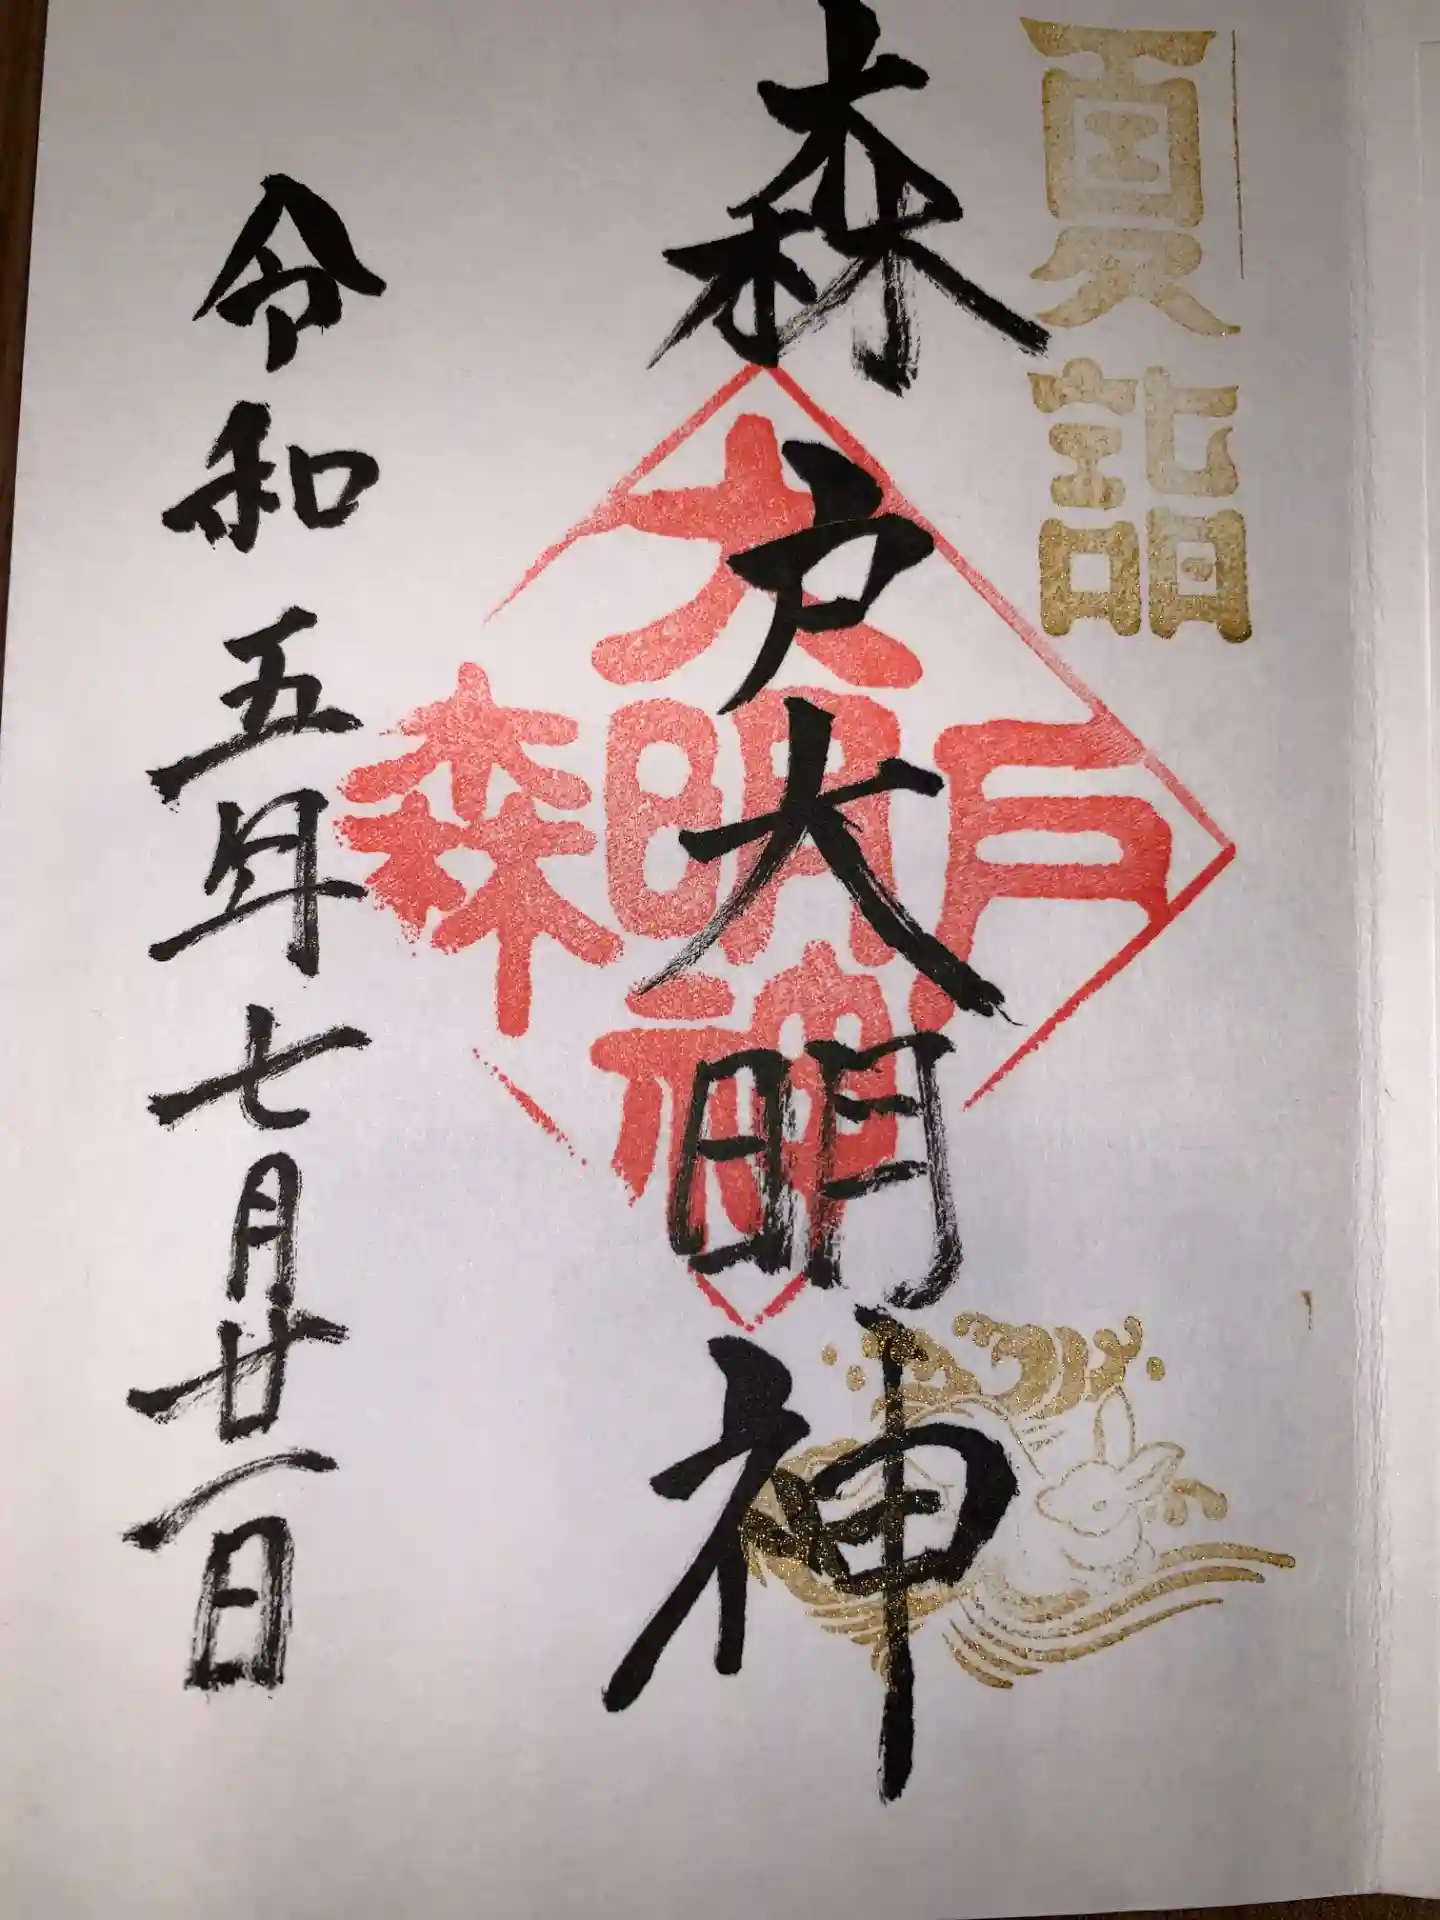 夏詣
森戸大明神
大
森明戸
神
令和五年七月廿一日